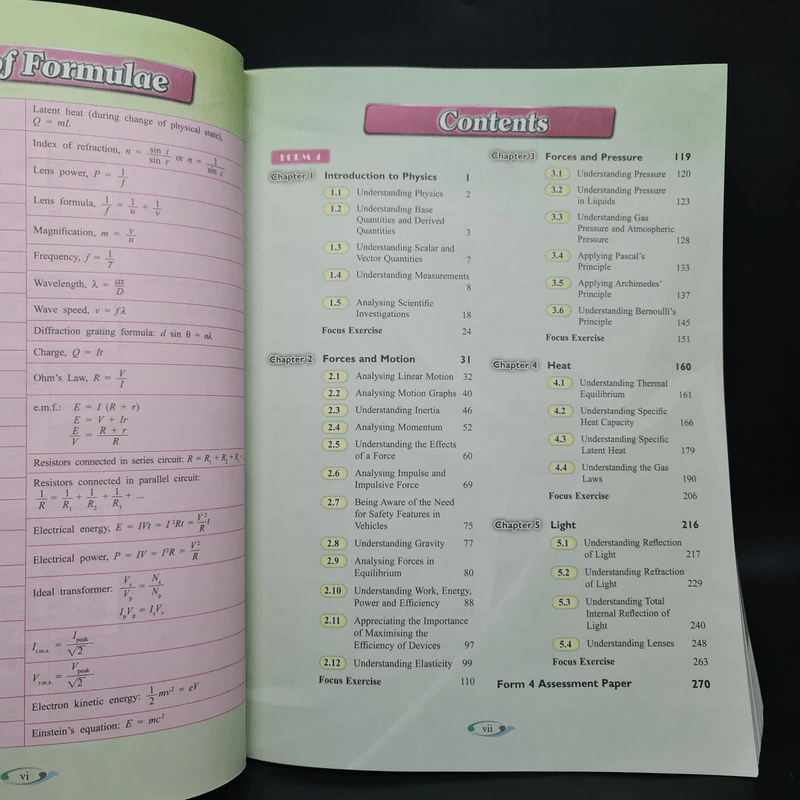 of Formulae
Latent heat (during change of physical state),
Q = mL
Index of refraction, n = sin i / sin r or n = 1 / sin c
Lens power, P = 1/f
Lens formula, 1/f = 1/u + 1/v
Magnification, m = v/u
Frequency, f = 1/T
Wavelength, λ = ax/D
Wave speed, v = fλ
Diffraction grating formula: d sin θ = nλ
Charge, Q = It
Ohm's Law, R = V/I
e.m.f.: E = I (R + r)
E = V + Ir
E/V = (R + r)/R
Resistors connected in series circuit: R = R₁ + R₂ + R₃ +
Resistors connected in parallel circuit:
1/R = 1/R₁ + 1/R₂ + 1/R₃ + ...
Electrical energy, E = IVt = I²Rt = V²/R t
Electrical power, P = IV = I²R = V²/R
Ideal transformer: Vs/Vp = Ns/Np
IpVp = IsVs
Ir.m.s. = Ipeak/√2
Vr.m.s. = Vpeak/√2
Electron kinetic energy: 1/2 mv² = eV
Einstein's equation: E = mc²
vi
Contents
FORM 4
Chapter 1 Introduction to Physics 1
1.1 Understanding Physics 2
1.2 Understanding Base
Quantities and Derived
Quantities 3
1.3 Understanding Scalar and
Vector Quantities 7
1.4 Understanding Measurements
8
1.5 Analysing Scientific
Investigations 18
Focus Exercise 24
Chapter 2 Forces and Motion 31
2.1 Analysing Linear Motion 32
2.2 Analysing Motion Graphs 40
2.3 Understanding Inertia 46
2.4 Analysing Momentum 52
2.5 Understanding the Effects
of a Force 60
2.6 Analysing Impulse and
Impulsive Force 69
2.7 Being Aware of the Need
for Safety Features in
Vehicles 75
2.8 Understanding Gravity 77
2.9 Analysing Forces in
Equilibrium 80
2.10 Understanding Work, Energy,
Power and Efficiency 88
2.11 Appreciating the Importance
of Maximising the
Efficiency of Devices 97
2.12 Understanding Elasticity 99
Focus Exercise 110
Chapter 3 Forces and Pressure 119
3.1 Understanding Pressure 120
3.2 Understanding Pressure
in Liquids 123
3.3 Understanding Gas
Pressure and Atmospheric
Pressure 128
3.4 Applying Pascal's
Principle 133
3.5 Applying Archimedes'
Principle 137
3.6 Understanding Bernoulli's
Principle 145
Focus Exercise 151
Chapter 4 Heat 160
4.1 Understanding Thermal
Equilibrium 161
4.2 Understanding Specific
Heat Capacity 166
4.3 Understanding Specific
Latent Heat 179
4.4 Understanding the Gas
Laws 190
Focus Exercise 206
Chapter 5 Light 216
5.1 Understanding Reflection
of Light 217
5.2 Understanding Refraction
of Light 229
5.3 Understanding Total
Internal Reflection of
Light 240
5.4 Understanding Lenses 248
Focus Exercise 263
Form 4 Assessment Paper 270
vii